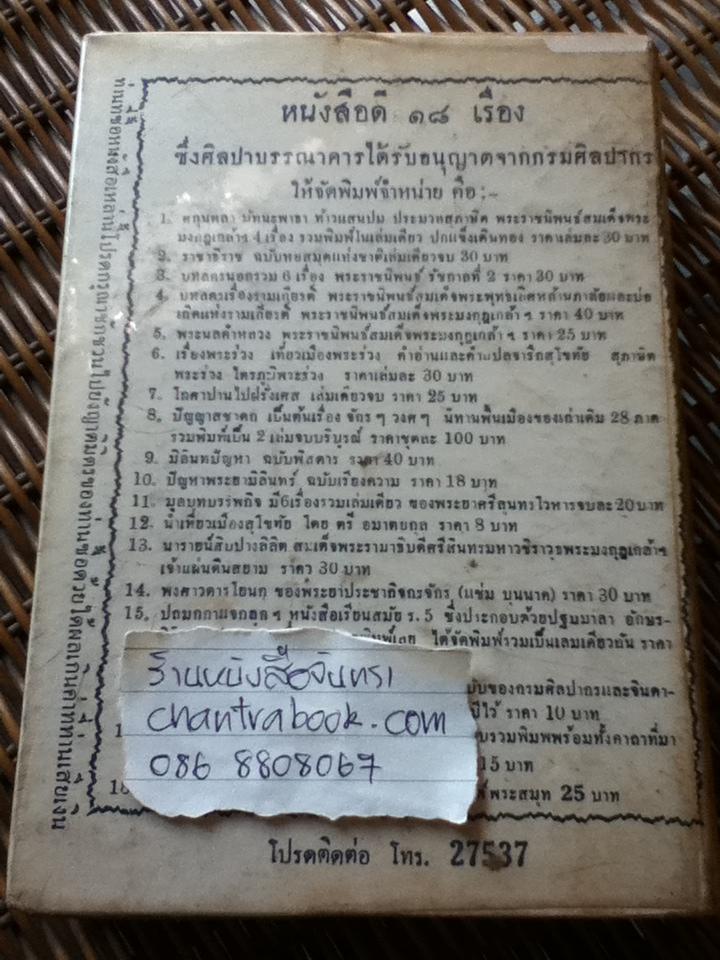 หนังสือดี ๑๘ เรื่อง
ซึ่งศิลปาบรรณาคารได้รับอนุญาตจากกรมศิลปากร
ให้จัดพิมพ์จำหน่าย คือ:-
1. ศกุนตลา มัทนะพาธา ท้าวแสนปม ประมวลสุภาษิต พระราชนิพนธ์สมเด็จพระ
มงกุฎเกล้าฯ 4 เรื่อง รวมพิมพ์ในเล่มเดียว ปกแข็งเดินทอง ราคาเล่มละ 30 บาท
2. ราชาธิราช ฉบับหอสมุดแห่งชาติเล่มเดียวจบ 30 บาท
3. บทละครนอกรวม 6 เรื่อง พระราชนิพนธ์ รัชกาลที่ 2 ราคา 30 บาท
4. บทละครเรื่องรามเกียรติ์ พระราชนิพนธ์สมเด็จพระพุทธเลิศหล้านภาลัยและบ่อ
เกิดแห่งรามเกียรติ์ พระราชนิพนธ์สมเด็จพระมงกุฎเกล้าฯ ราคา 40 บาท
5. พระนลคำหลวง พระราชนิพนธ์สมเด็จพระมงกุฎเกล้าฯ ราคา 25 บาท
6. เรื่องพระร่วง เที่ยวเมืองพระร่วง คำอ่านและคำแปลจารึกสุโขทัย สุภาษิต
พระร่วง ไตรภูมิพระร่วง ราคาเล่มละ 30 บาท
7. โกศาปานไปฝรั่งเศส เล่มเดียวจบ ราคา 25 บาท
8. ปัญญาสชาดก เป็นต้นเรื่อง จักรๆ วงศๆ นิทานพื้นเมืองของเก่าเดิม 28 ภาค
รวมพิมพ์เป็น 2 เล่มจบบริบูรณ์ ราคาชุดละ 100 บาท
9. มิลินทปัญหา ฉบับพิสดาร ราคา 40 บาท
10. ปัญหาพระยามิลินทร์ ฉบับเรียงความ ราคา 18 บาท
11. มูลบทบรรพกิจ มี 6 เรื่องรวมเล่มเดียว ของพระยาศรีสุนทรโวหารจบละ 20 บาท
12. นำเที่ยวเมืองสุโขทัย โดย ตรี อมาตยกุล ราคา 8 บาท
13. นารายน์สิบปางลิลิต สมเด็จพระรามาธิบดีศรีสินทรมหาวชิราวุธพระมงกุฎเกล้าฯ
เจ้าแผ่นดินสยาม ราคา 30 บาท
14. พงศาวดารโยนก ของพระยาประชากิจกรจักร (แช่ม บุนนาค) ราคา 30 บาท
15. ปถมกกาแจกลูกฯ หนังสือเรียนสมัย ร. 5 ซึ่งประกอบด้วยปฐมมาลา อักษร-
ได้จัดพิมพ์รวมเป็นเล่มเดียวกัน ราคา
ของกรมศิลปากรและจินดา-
ราคา 10 บาท
รวมพิมพพร้อมทั้งคาถาที่มา
15 บาท
พระสมุท 25 บาท
ร้านหนังสือจันทรา
chantrabook.com
086 8808067
โปรดติดต่อ โทร. 27537